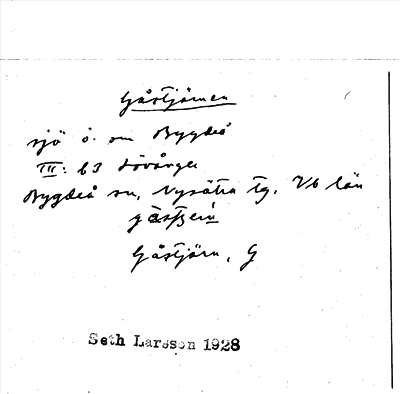 Gåstjärnen
sjö ö. om Bygdeå
III: b3 Lövånger
Bygdeå sn, Nysätra tg, Vb län
Gåstjärn, G
Seth Larsson 1928